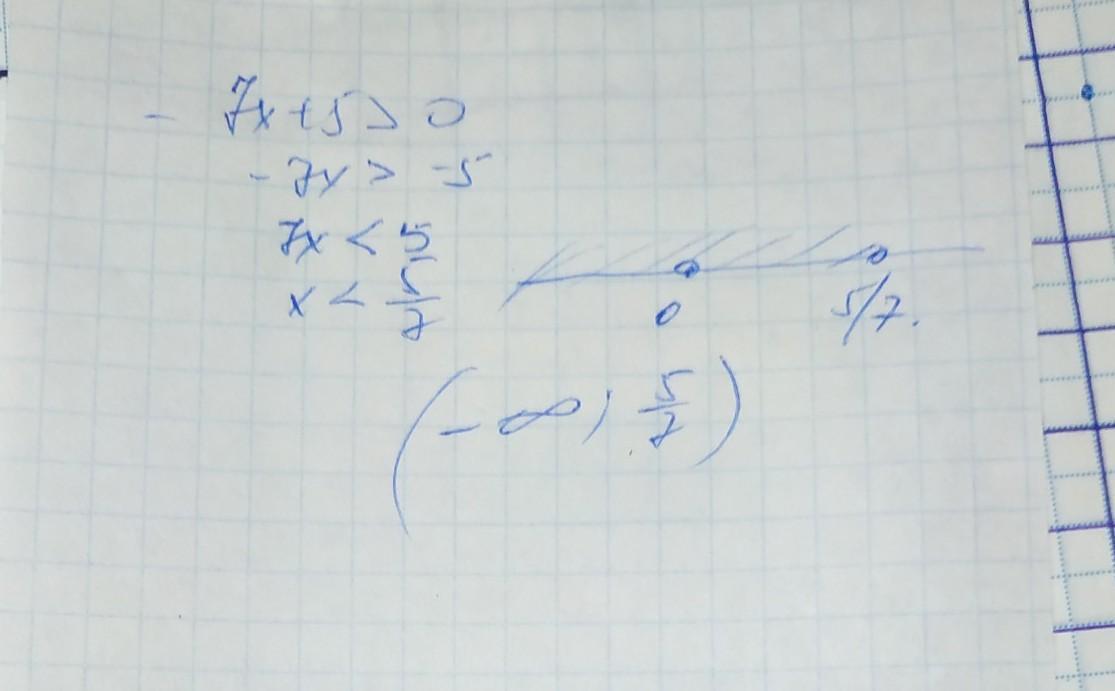 - 7x+5>0
-7x > -5
7x < 5
x < 5/7
0 5/7.
(-∞; 5/7)